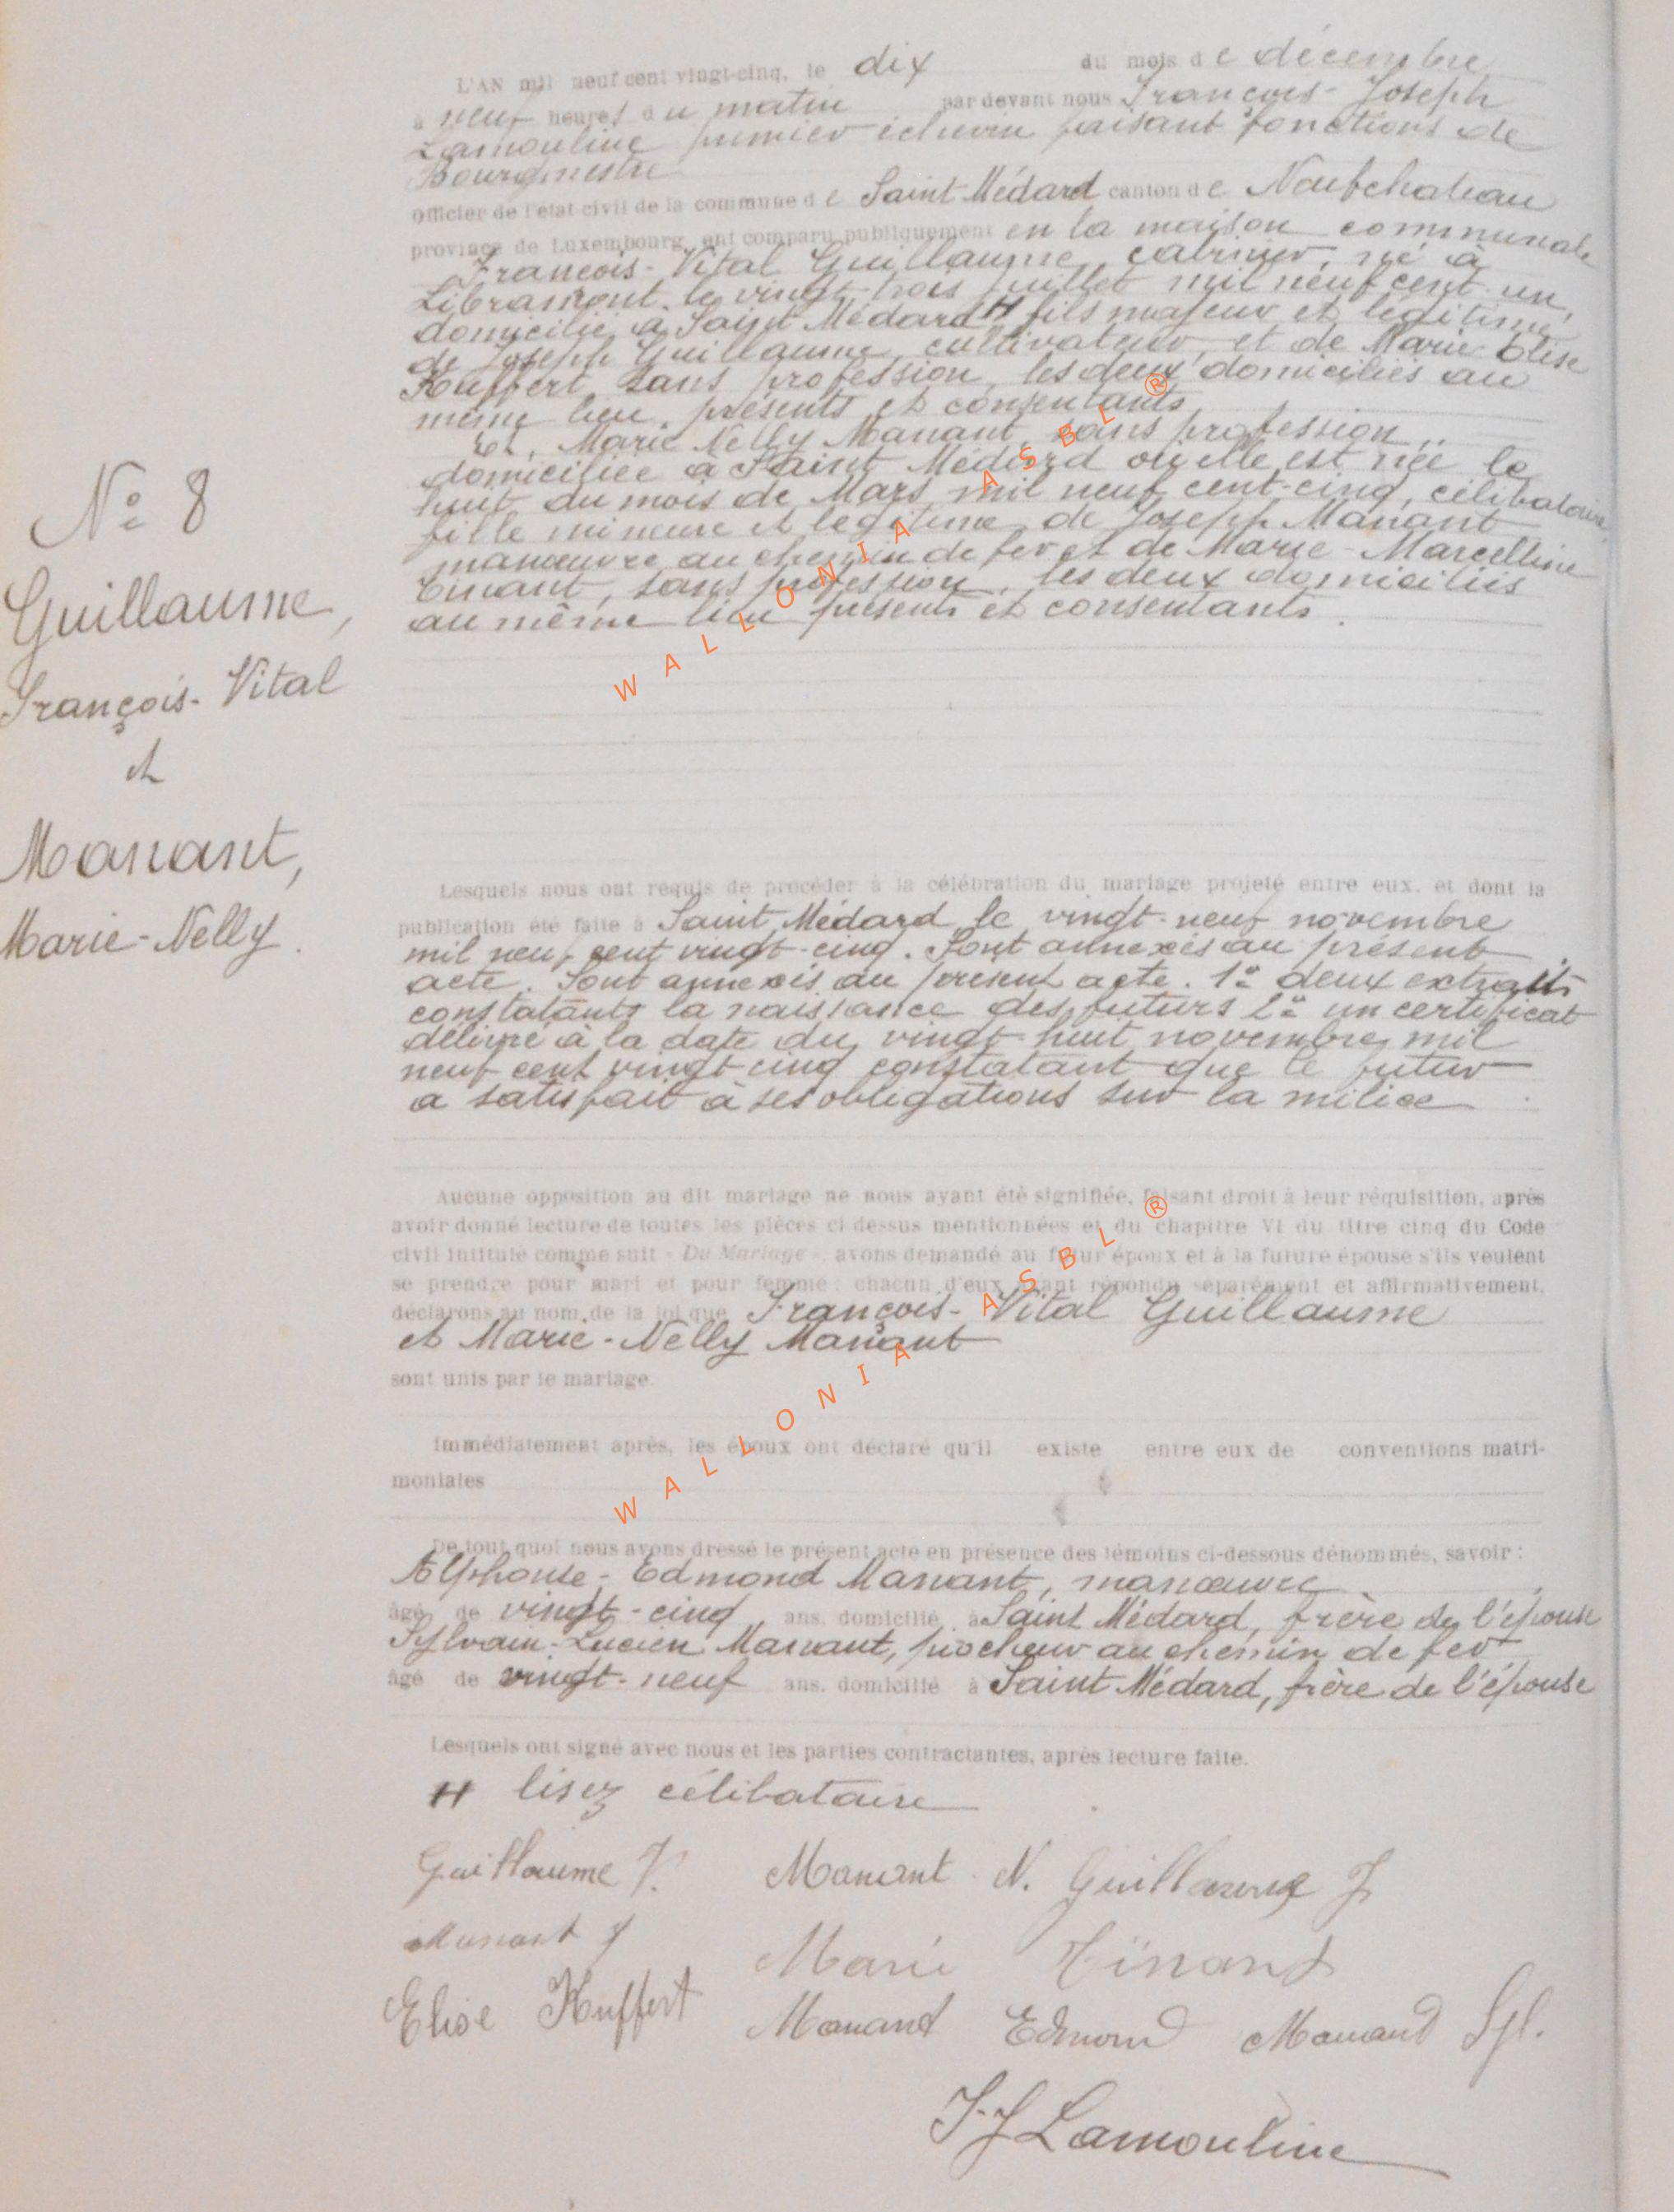 L'AN mil neuf cent vingt-cinq, le dix du mois de décembre
à neuf heures du matin par devant nous François-Joseph
Lamouline premier échevin faisant fonctions de
Bourgmestre
officier de l'état civil de la commune de Saint-Médard canton de Neufchateau
province de Luxembourg, ont comparu publiquement en la maison communale
François-Vital Guillaume, né à
Libramont le vingt-trois juillet mil neuf cent-un,
domicilié à Saint Médard H fils majeur et légitime
de Joseph Guillaume, cultivateur, et de Marie Elise
Kuffert sans profession, les deux domiciliés au
même lieu, présents et consentants
Et, Marie Nelly Manant, sans profession,
domiciliée à Saint Médard où elle est née le
huit du mois de Mars mil neuf cent-cinq, célibataire
fille mineure et légitime de Joseph Manant
manœuvre au chemin de fer et de Marie-Marcelline
Tinant, sans profession, les deux domiciliés
au même lieu présents et consentants.
N° 8
Guillaume,
François-Vital
et
Manant,
Marie-Nelly.
Lesquels nous ont requis de procéder à la célébration du mariage projeté entre eux, et dont la
publication été faite à Saint Médard le vingt-neuf novembre
mil neuf cent vingt-cinq. Sont annexés au présent
acte. Sont annexés au présent acte. 1° deux extraits
constatants la naissance des futurs 2° un certificat
délivré à la date du vingt-huit novembre mil
neuf cent vingt cinq constatant que le futur
a satisfait à ses obligations sur la milice
Aucune opposition au dit mariage ne nous ayant été signifiée, faisant droit à leur réquisition, après
avoir donné lecture de toutes les pièces ci dessus mentionnées et du chapitre VI du titre cinq du Code
civil intitulé comme suit « Du Mariage », avons demandé au futur époux et à la future épouse s'ils veulent
se prendre pour mari et pour femme : chacun d'eux ayant répondu séparément et affirmativement,
déclarons au nom de la loi que François-Vital Guillaume
et Marie-Nelly Manant
sont unis par le mariage.
Immédiatement après, les époux ont déclaré qu'il existe entre eux de conventions matri-
moniales
De tout quoi nous avons dressé le présent acte en présence des témoins ci-dessous dénommés, savoir :
Alphonse-Edmond Manant, manœuvre
âgé de vingt-cinq ans, domicilié à Saint Médard, frère de l'épouse
Sylvain-Lucien Manant, piocheur au chemin de fer
âgé de vingt-neuf ans, domicilié à Saint Médard, frère de l'épouse
Lesquels ont signé avec nous et les parties contractantes, après lecture faite.
H lisez célibataire
Guillaume V. Manant N. Guillaume J
Manant J Marie Tinant
Elise Kuffert Manand Edmond Manand Syl.
F. J Lamouline
WALLONIA ASBL ®
WALLONIA ASBL ®